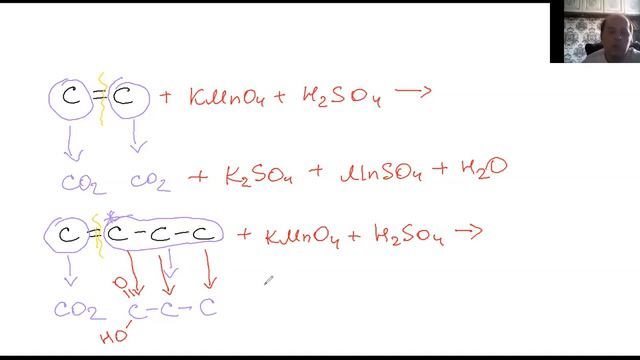 C = C + KMnO4 + H2SO4 →
CO2 CO2 + K2SO4 + MnSO4 + H2O
C = C - C - C + KMnO4 + H2SO4 →
O
CO2 C - C - C
HO